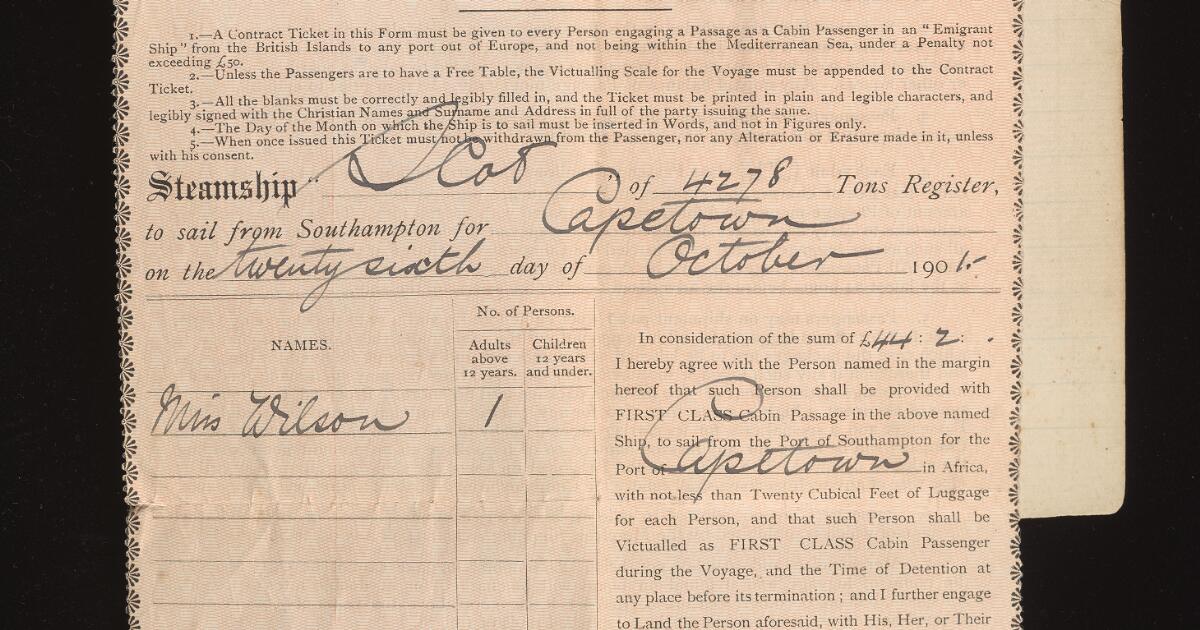 1.—A Contract Ticket in this Form must be given to every Person engaging a Passage as a Cabin Passenger in an “Emigrant
Ship” from the British Islands to any port out of Europe, and not being within the Mediterranean Sea, under a Penalty not
exceeding £50.
2.—Unless the Passengers are to have a Free Table, the Victualling Scale for the Voyage must be appended to the Contract
Ticket.
3.—All the blanks must be correctly and legibly filled in, and the Ticket must be printed in plain and legible characters, and
legibly signed with the Christian Names and Surname and Address in full of the party issuing the same.
4.—The Day of the Month on which the Ship is to sail must be inserted in Words, and not in Figures only.
5.—When once issued this Ticket must not be withdrawn from the Passenger, nor any Alteration or Erasure made in it, unless
with his consent.
Steamship “Scot” of 4278 Tons Register,
to sail from Southampton for Capetown
on the twenty sixth day of October 1901.
No. of Persons.
NAMES.
Adults above 12 years.
Children 12 years and under.
Miss Wilson 1
In consideration of the sum of £44 : 2 : .
I hereby agree with the Person named in the margin
hereof that such Person shall be provided with
FIRST CLASS Cabin Passage in the above named
Ship, to sail from the Port of Southampton for the
Port of Capetown in Africa,
with not less than Twenty Cubical Feet of Luggage
for each Person, and that such Person shall be
Victualled as FIRST CLASS Cabin Passenger
during the Voyage, and the Time of Detention at
any place before its termination ; and I further engage
to Land the Person aforesaid, with His, Her, or Their